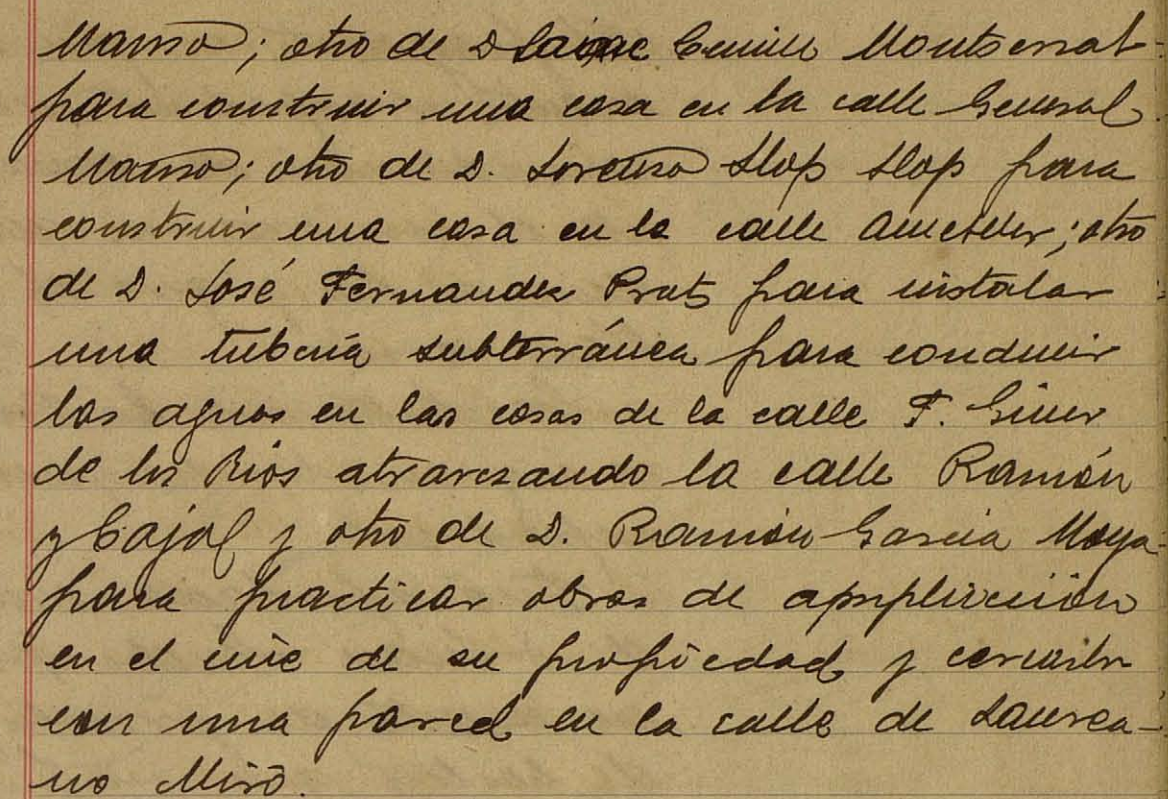 Manso; otro de D Jaime Comill Montserrat
para construir una casa en la calle General
Manso; otro de D. Lorenzo Llop Llop para
construir una casa en la calle Ametller; otro
de D. José Fernandez Prats para instalar
una tubería subterránea para conducir
las aguas en las casas de la calle F. Giner
de los Rios atravezando la calle Ramón
y Cajal y otro de D. Ramón Garcia Moya
para practicar obras de ampliación
en el cine de su propiedad y
con una pared en la calle de Laurea-
no Miró.